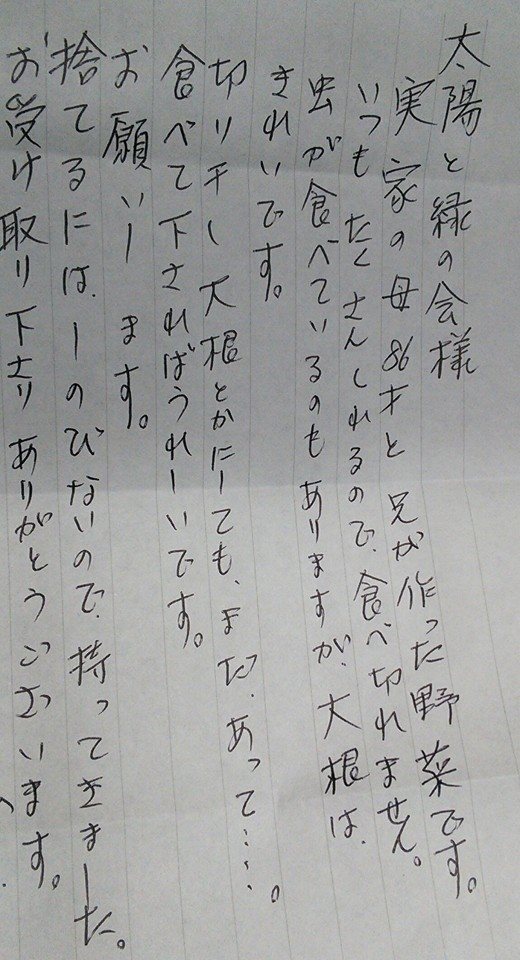 太陽と緑の会様
実家の母86才と兄が作った野菜です。
いつもたくさんくれるので、食べ切れません。
虫が食べているのもありますが、大根は、
きれいです。
切り干し大根とかにしても、まだ、あって……。
食べて下さればうれしいです。
お願いします。
捨てるには、しのびないので、持ってきました。
お受け取り下さりありがとうございます。